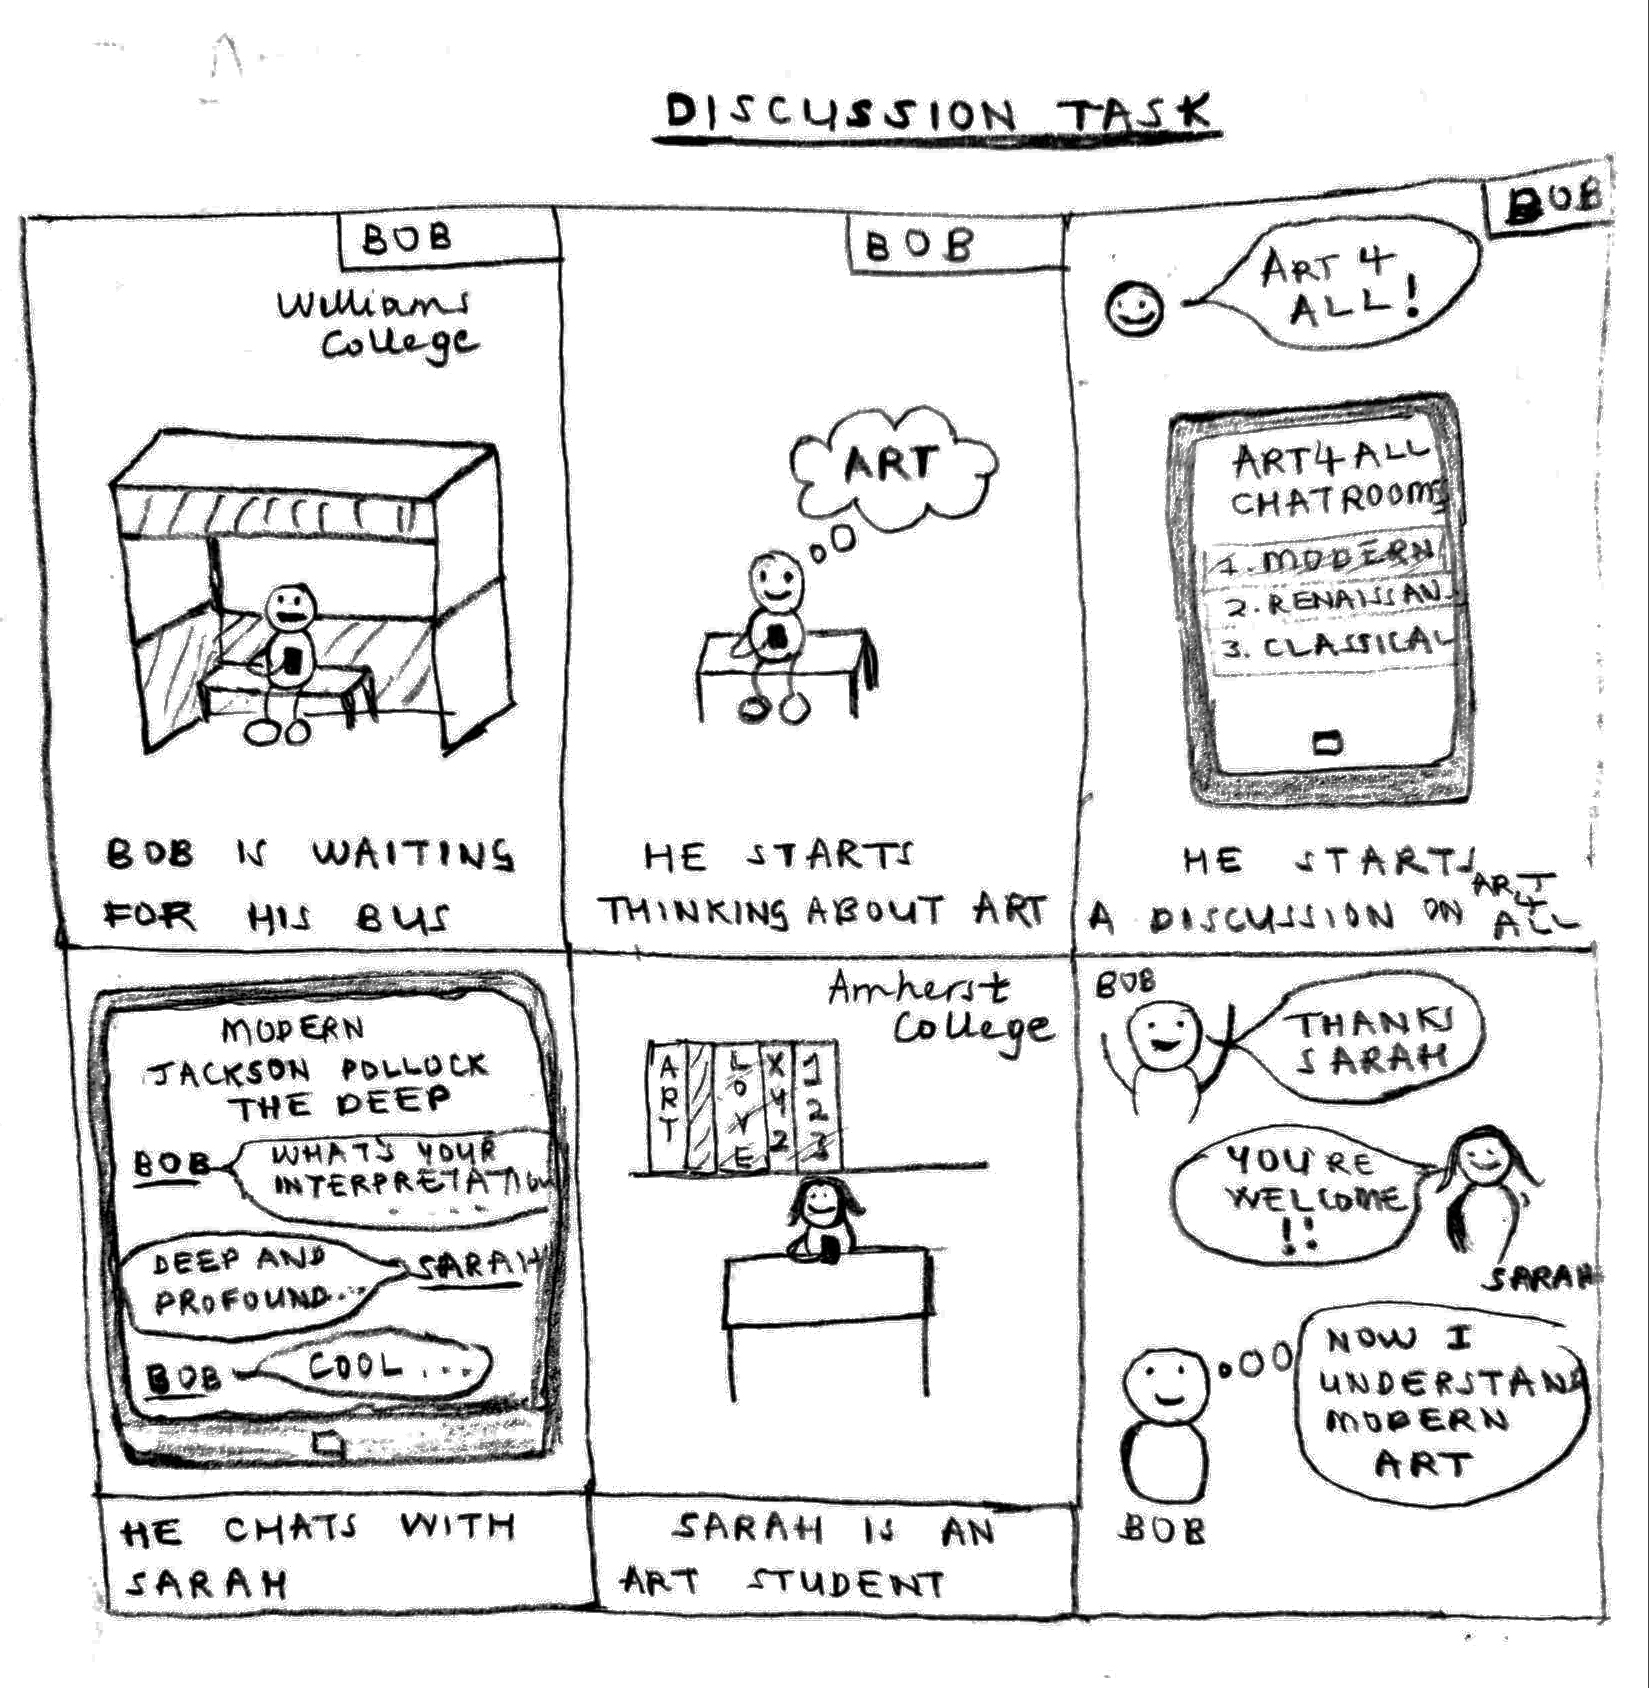 DISCUSSION TASK
BOB
Williams
College
BOB IS WAITING
FOR HIS BUS
BOB
ART
HE STARTS
THINKING ABOUT ART
BOB
ART 4
ALL!
ART4ALL
CHATROOMS
1. MODERN
2. RENAISSAN
3. CLASSICAL
HE STARTS
A DISCUSSION ON ART
4
ALL
MODERN
JACKSON POLLOCK
THE DEEP
BOB
WHAT'S YOUR
INTERPRETATION
....
DEEP AND
PROFOUND...
SARAH
BOB
COOL...
HE CHATS WITH
SARAH
Amherst
College
ART
LOVE
XY2
123
SARAH IS AN
ART STUDENT
BOB
THANKS
SARAH
YOU'RE
WELCOME
!!
SARAH
NOW I
UNDERSTAND
MODERN
ART
BOB